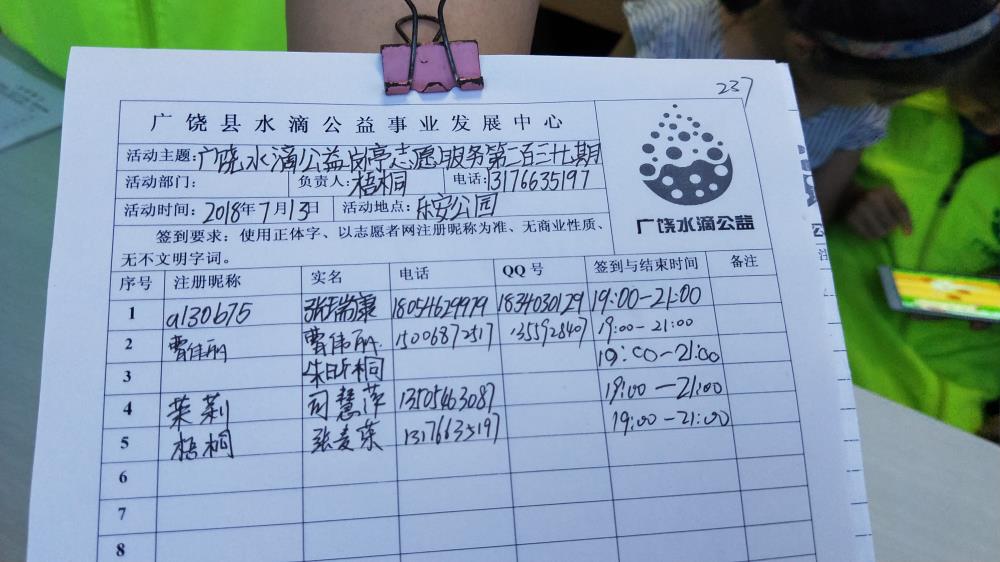 237
广饶县水滴公益事业发展中心
活动主题:广饶水滴公益岗亭志愿服务第二百三十七期
活动部门: 负责人:梧桐 电话:13176635197
活动时间:2018年7月13日 活动地点:乐安公园
签到要求:使用正体字、以志愿者网注册昵称为准、无商业性质、
无不文明字词。
广饶水滴公益
序号 注册昵称 实名 电话 QQ号 签到与结束时间 备注
1 a130675 张瑞康 18054629979 1834030129 19:00-21:00
2 曹伟丽 曹伟丽 15006872517 135592840? 19:00-21:00
3 朱昕桐 19:00-21:00
4 茉莉 司慧萍 13505463087 19:00-21:00
5 梧桐 张麦荣 13176635197 19:00-21:00
6
7
8